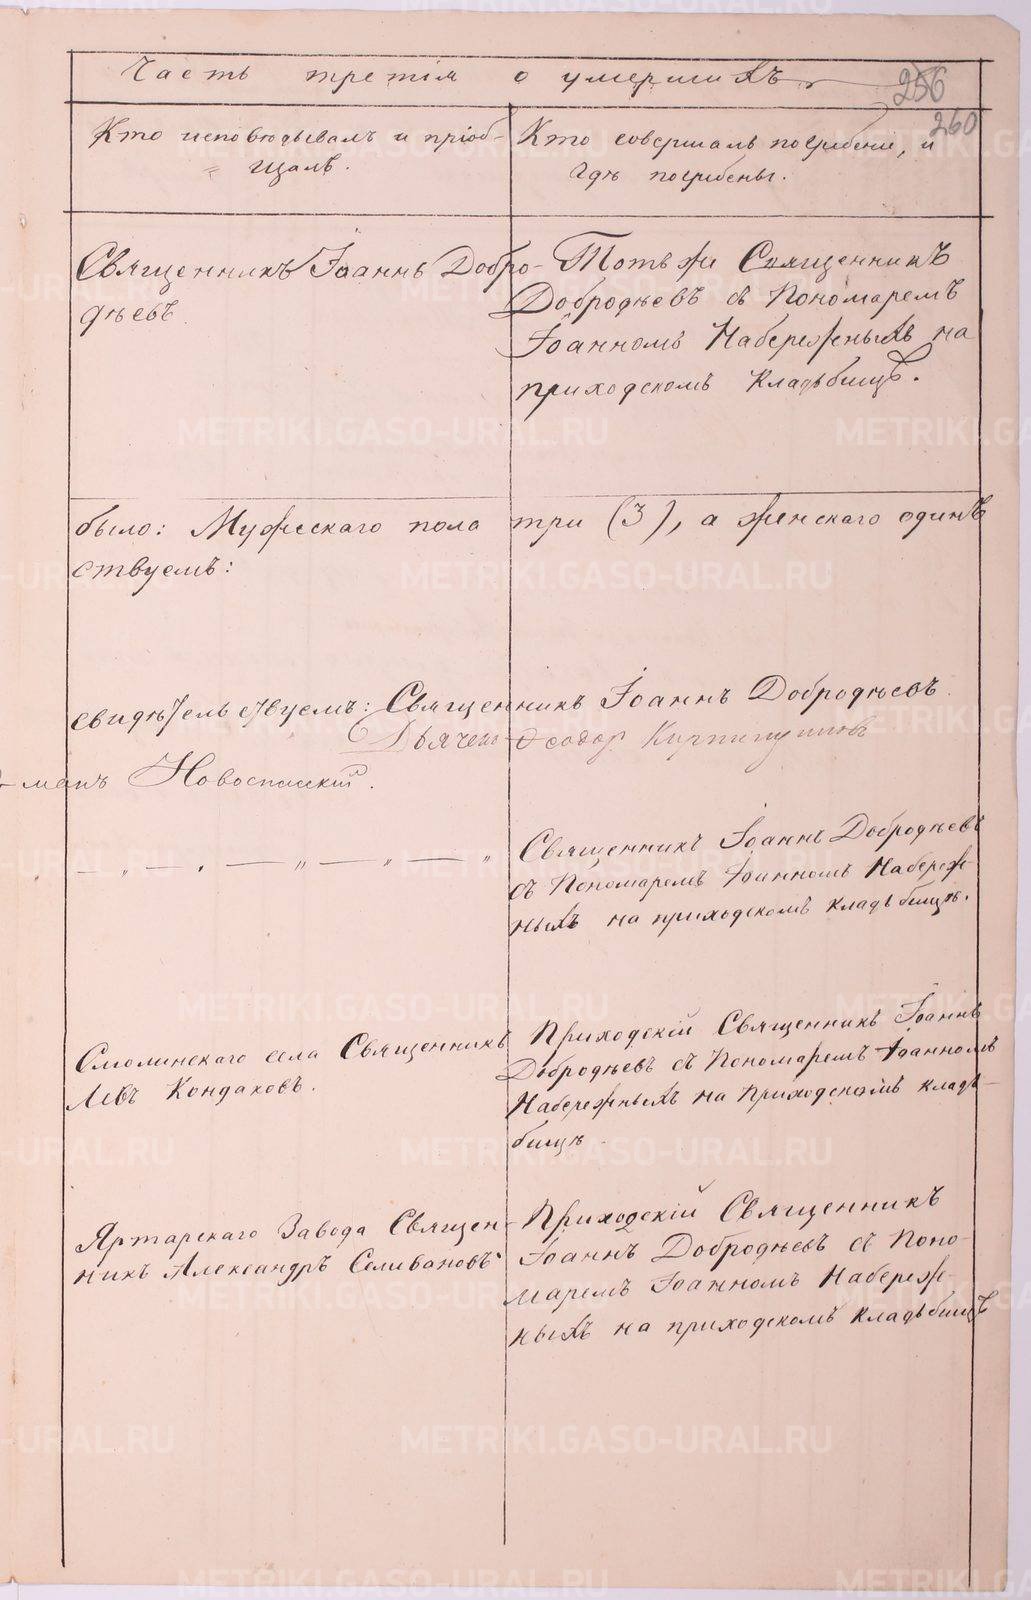 Часть третія о умершихъ
256
260
Кто исповѣдывалъ и пріоб-
щалъ.
Кто совершалъ погребеніе, и
гдѣ погребены.
Священникъ Іоаннъ Добро-
дѣевъ
Тотъ же Священникъ
Добродѣевъ съ Пономаремъ
Іоанномъ Набережныхъ на
приходскомъ кладьбищѣ.
было: Мужескаго пола три (3), а женскаго одинъ
ствуемъ:
свидѣтельствуемъ: Священникъ Іоаннъ Добродѣевъ.
Дьячекъ Ѳеодор
Новоспасскій.
— „ — „ — „ — „ — „
Священникъ Іоаннъ Добродѣевъ
съ Пономаремъ Іоанномъ Набереж-
ныхъ на приходскомъ кладьбищѣ.
Смолинскаго села Священникъ
Левъ Кондаковъ.
Приходскій Священникъ Іоаннъ
Добродѣевъ съ Пономаремъ Іоанномъ
Набережныхъ на Приходскомъ кладь-
бищѣ
Яртарскаго Завода Священ-
никъ Александръ Селивановъ
Приходскій Священникъ
Іоаннъ Добродѣевъ съ Поно-
маремъ Іоанномъ Набереж-
ныхъ на приходскомъ кладьбищѣ
METRIKI.GASO-URAL.RU